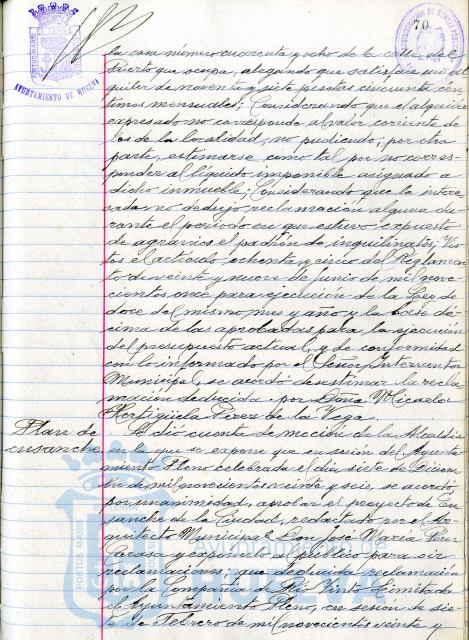 70
AYUNTAMIENTO DE HUELVA
la casa número cuarenta y ocho de la calle del
Puerto que ocupa, alegando que satisface un al
quiler de noventa y siete pesetas cincuenta cén
timos mensuales; Considerando que el alquiler
expresado no corresponde al valor corriente de
los de la localidad, no pudiendo, por otra
parte, estimarse como tal por no corres
ponder al líquido imponible asignado a
dicho inmueble; Considerando que la intere
sada no dedujo reclamación alguna du
rante el período en que estuvo expuesto
de agravios el padrón de inquilinatos; Vis
tos el artículo ochenta y cinco del Reglamen
to de veinte y nueve de Junio de mil nove
cientos once para ejecución de la Ley de
doce del mismo mes y año y la base dé
cima de las aprobadas para la ejecución
del presupuesto actual, y de conformidad
con lo informado por el Señor Interventor
Municipal, se acordó desestimar la recla
mación deducida por Doña Micaela
Hortigüela Pérez de la Vega.
Plan de
ensanche
Se dió cuenta de moción de la Alcaldía
en la que se expone que en sesión del Ayunta
miento Pleno celebrada el día siete de Diciem
bre de mil novecientos veinte y seis, se acordó
por unanimidad, aprobar el proyecto de En
sanche de la Ciudad, redactado por el Ar
quitecto Municipal Don José María Pérez
Carasa y expuesto al público para oir
reclamaciones, que deducida reclamación
por la Compañía de Rio Tinto Limitada
el Ayuntamiento Pleno, en sesión de sie
te de Febrero de mil novecientos veinte y
PORTUS MARIS
HUELVA